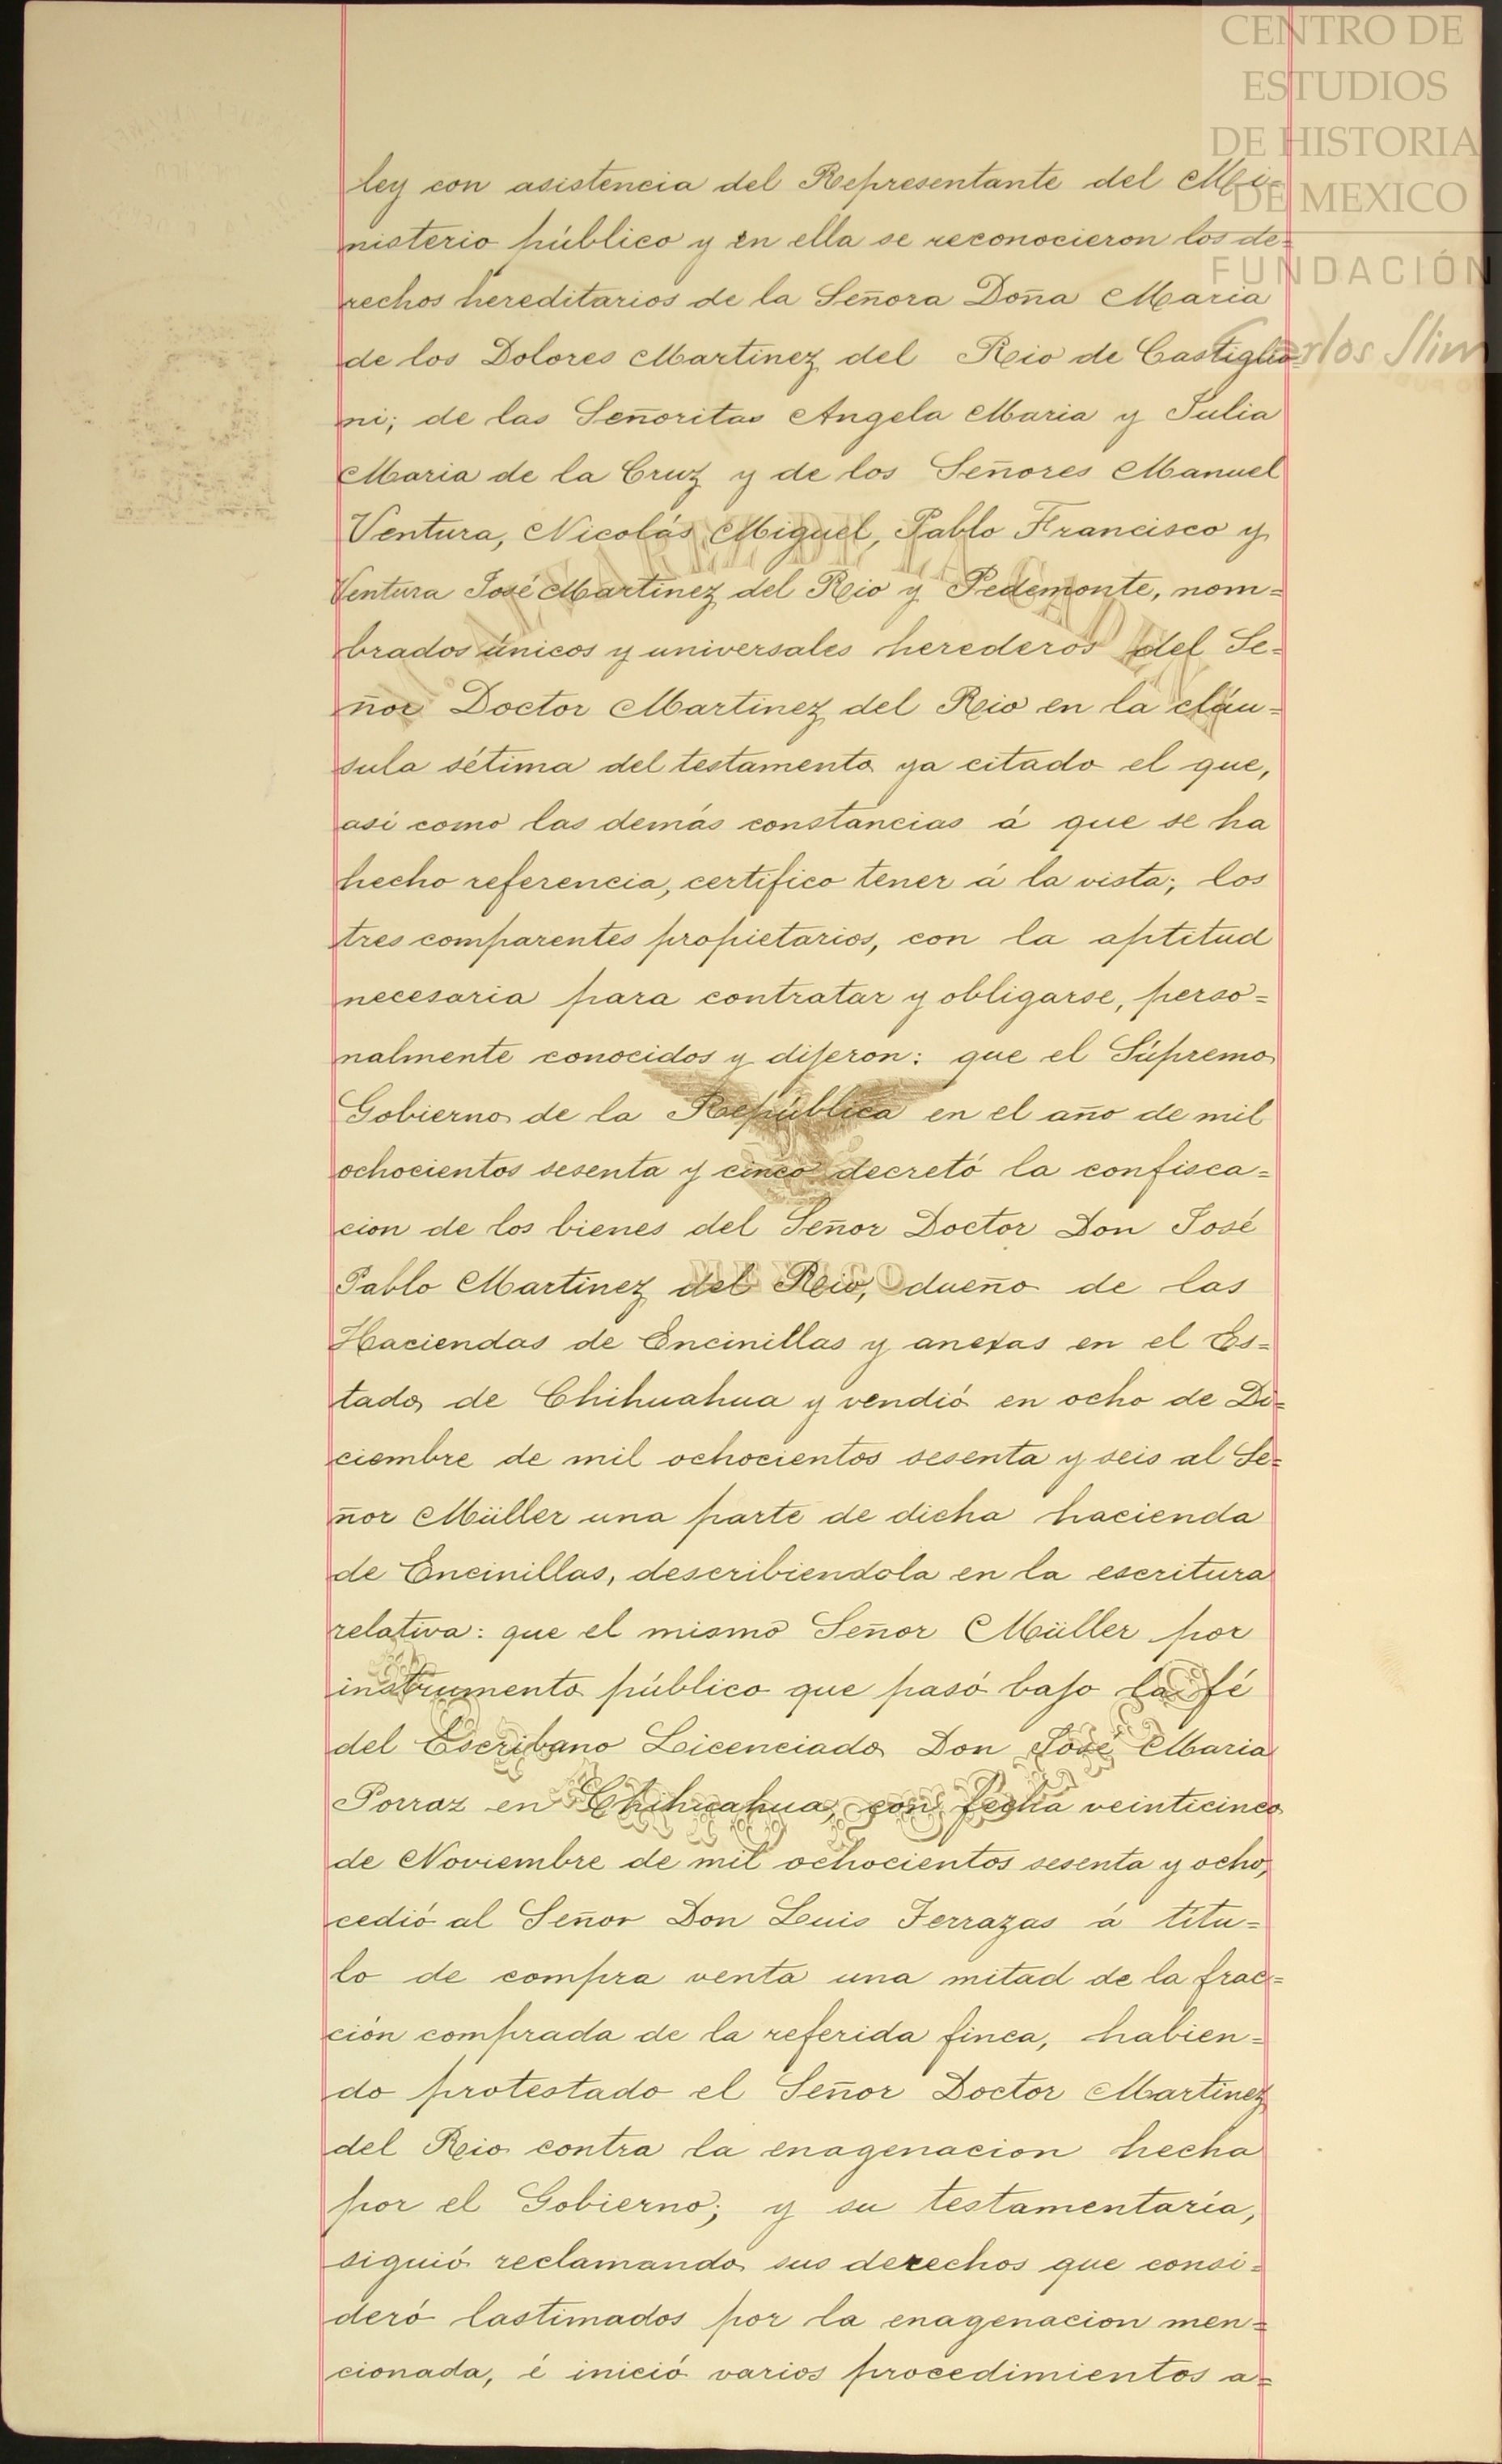 CENTRO DE
ESTUDIOS
DE HISTORIA
DE MEXICO
FUNDACIÓN
Carlos Slim
ley con asistencia del Representante del Mi-
nisterio público y en ella se reconocieron los de-
rechos hereditarios de la Señora Doña Maria
de los Dolores Martinez del Rio de Castiglio
ni; de las Señoritas Angela Maria y Julia
Maria de la Cruz y de los Señores Manuel
Ventura, Nicolás Miguel, Pablo Francisco y
Ventura José Martinez del Rio y Pedemonte, nom=
brados únicos y universales herederos del Se=
ñor Doctor Martinez del Rio en la cláu=
sula sétima del testamento ya citado el que,
asi como las demás constancias á que se ha
hecho referencia, certifico tener á la vista; los
tres comparentes propietarios, con la aptitud
necesaria para contratar y obligarse, perso=
nalmente conocidos y dijeron: que el Súpremo
Gobierno de la República en el año de mil
ochocientos sesenta y cinco decretó la confisca=
cion de los bienes del Señor Doctor Don José
Pablo Martinez del Rio, dueño de las
MEXICO
Haciendas de Encinillas y anexas en el Es=
tado de Chihuahua y vendió en ocho de Di=
ciembre de mil ochocientos sesenta y seis al Se=
ñor Müller una parte de dicha hacienda
de Encinillas, describiendola en la escritura
relativa: que el mismo Señor Müller por
instrumento público que pasó bajo la fé
del Escribano Licenciado Don José Maria
Porraz en Chihuahua, con fecha veinticinco
de Noviembre de mil ochocientos sesenta y ocho,
cedió al Señor Don Luis Terrazas á titu=
lo de compra venta una mitad de la frac=
ción comprada de la referida finca, habien=
do protestado el Señor Doctor Martinez
del Rio contra la enagenacion hecha
por el Gobierno; y su testamentaría,
siguió reclamando sus derechos que consi=
deró lastimados por la enagenacion men=
cionada, é inició varios procedimientos a=